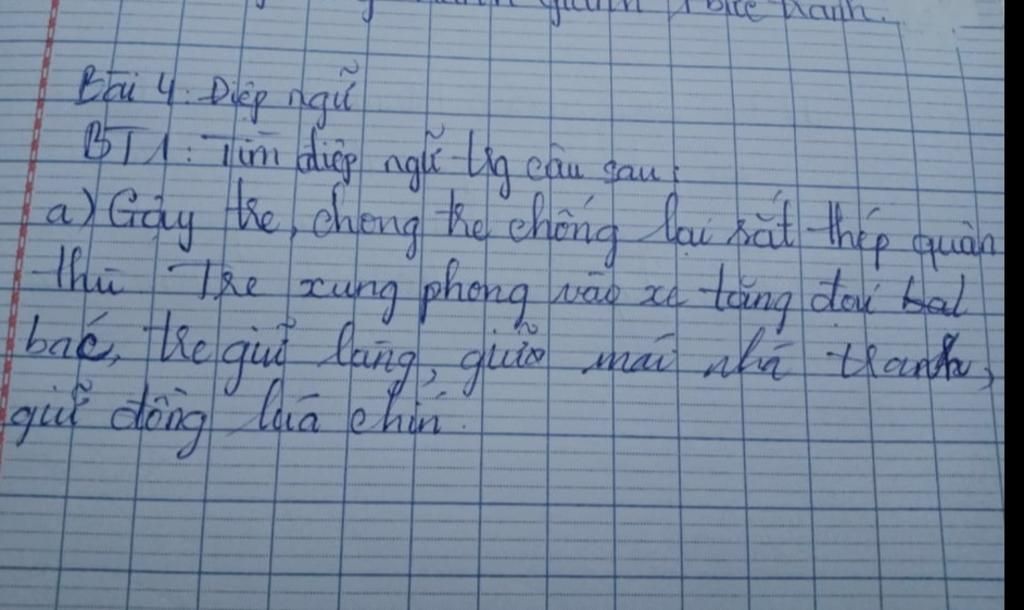 tranh.
Bài 4: Điệp ngữ
BT1: Tìm điệp ngữ tg câu sau:
a) Gậy tre, chong tre chống lại sắt thép quân
thù Tre xung phong vào xe tăng đại bal
bác, tre giữ làng, giữ mái nhà tranh,
giữ đồng lúa chín.